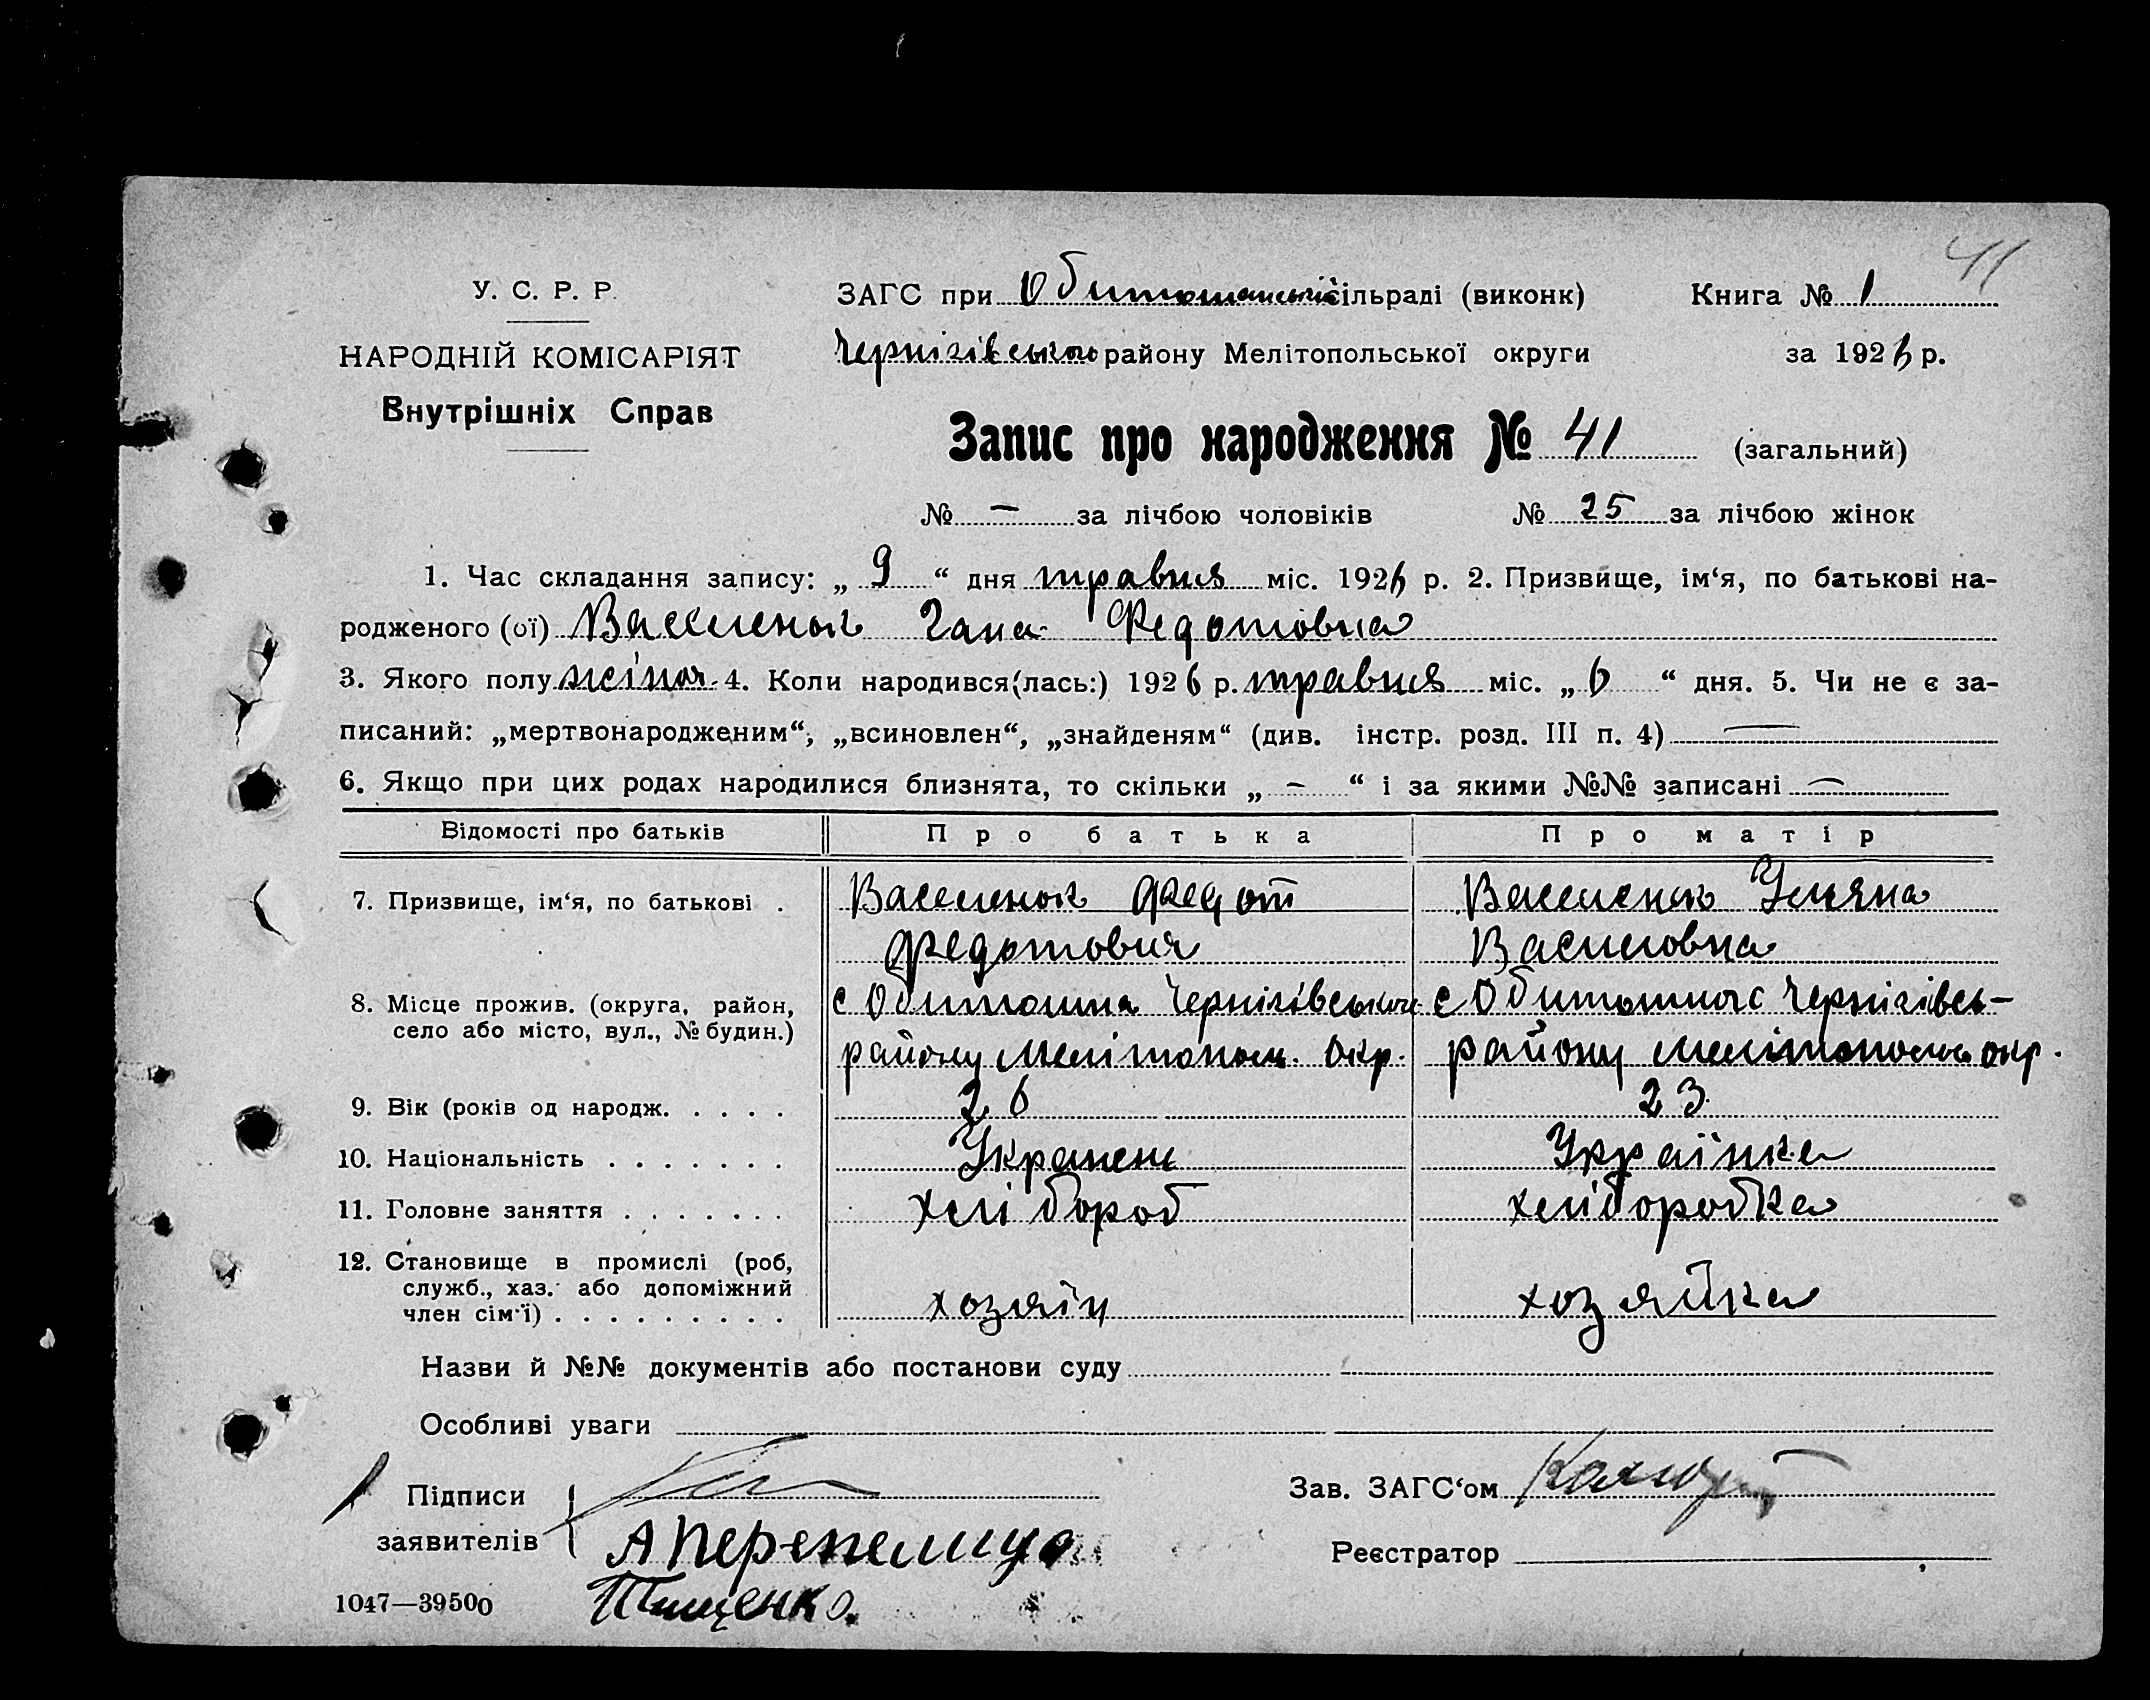 41
У. С. Р. Р.
НАРОДНІЙ КОМІСАРІЯТ
Внутрішніх Справ
ЗАГС при Обиточанській сільраді (виконк)
Книга № 1
Чернігівського району Мелітопольської округи
за 1926 р.
Запис про народження № 41 (загальний)
№ — за лічбою чоловіків № 25 за лічбою жінок
1. Час складання запису: „ 9 “ дня травня міс. 1926 р. 2. Призвище, ім‘я, по батькові на-
родженого (ої) Гана Федотовна
3. Якого полу жіноч. 4. Коли народився(лась:) 1926 р. травня міс. „ 6 “ дня. 5. Чи не є за-
писаний: „мертвонародженим“, „всиновлен“, „знайденям“ (див. інстр. розд. III п. 4) —
6. Якщо при цих родах народилися близнята, то скільки „ — “ і за якими №№ записані —
Відомості про батьків Про батька Про матір
7. Призвище, ім‘я, по батькові . Федот Уляна
Федотович Василовна
8. Місце прожив. (округа, район, с Обиточна Чернігівськ. с Обиточнас Чернігівсь—
село або місто, вул., № будин.) району Мелітопол. окр. району Мелітополь окр.
9. Вік (років од народж. . . . . 26 23
10. Національність . . . . . . . Українець Українка
11. Головне заняття . . . . . . . хлібороб хліборобка
12. Становище в промислі (роб,
служб., хаз. або допоміжний хозяїн хозяйка
член сім‘ї) . . . . . . . . .
Назви й №№ документів або постанови суду
Особливі уваги
Підписи
заявителів
Зав. ЗАГС‘ом
А Перепелица
Реєстратор
Тищенко.
1047—39500